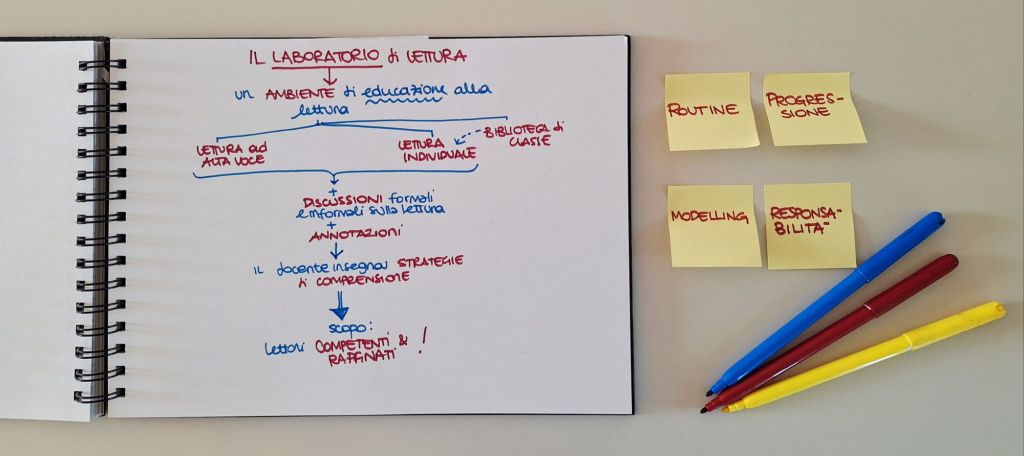 IL LABORATORIO di LETTURA
un AMBIENTE di educazione alla
lettura
LETTURA ad
ALTA VOCE
LETTURA
INDIVIDUALE
BIBLIOTECA di
CLASSE
+
DISCUSSIONI formali
e informali sulla lettura
+
ANNOTAZIONI
il docente insegna STRATEGIE
di COMPRENSIONE
scopo:
lettori COMPETENTI &
RAFFINATI !
ROUTINE
PROGRES-
SIONE
MODELLING
RESPONSA-
BILITÀ